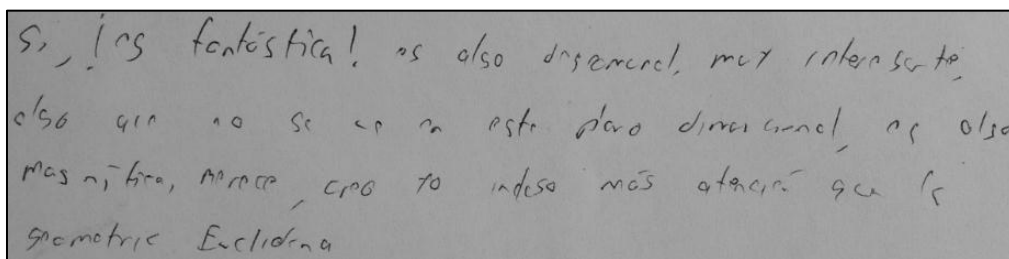 Si, ¡es fantástica! es algo descomunal, muy interesante,
algo que no se ve en este plano dimensional, es algo
magnífico, merece, creo yo incluso más atención que la
geometría Euclidena